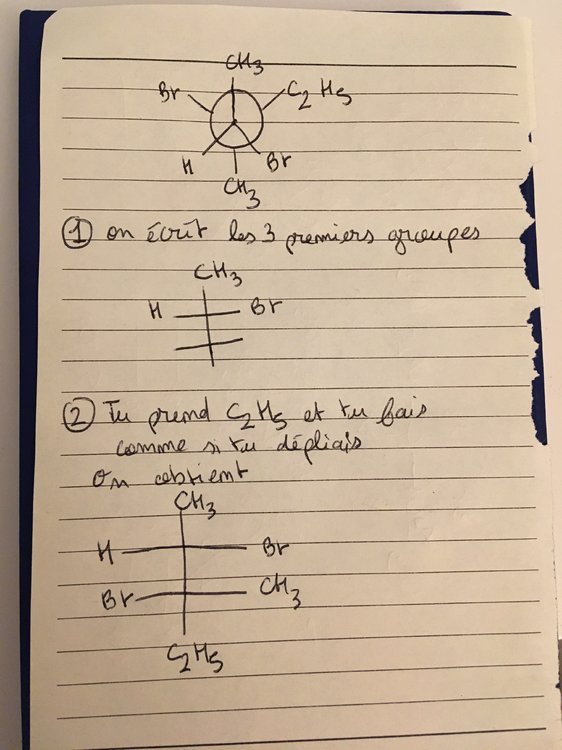 CH3
Br C2H5
H Br
CH3
① on écrit les 3 premiers groupes
CH3
H Br
② Tu prend C2H5 et tu fais
comme si tu dépliais
On obtient
CH3
H Br
Br CH3
C2H5